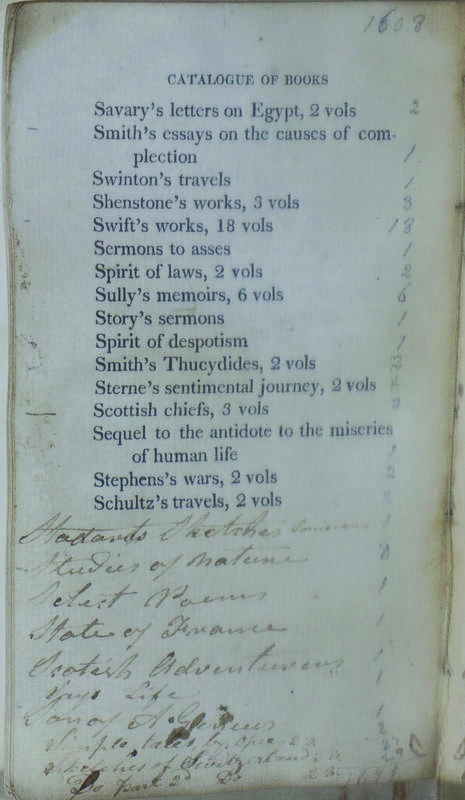 1608
CATALOGUE OF BOOKS
Savary's letters on Egypt, 2 vols 2
Smith's essays on the causes of com-
plection 1
Swinton's travels 1
Shenstone's works, 3 vols 3
Swift's works, 18 vols 18
Sermons to asses 1
Spirit of laws, 2 vols 2
Sully's memoirs, 6 vols 6
Story's sermons 1
Spirit of despotism 1
Smith's Thucydides, 2 vols
Sterne's sentimental journey, 2 vols
Scottish chiefs, 3 vols
Sequel to the antidote to the miseries
of human life 1
Stephens's wars, 2 vols 2
Schultz's travels, 2 vols 2
Sketches 1
Studies of nature
Select Poems 1
State of France 1
Scotish Adventurers 1
Life 1
Simple tales by Opie 2
Sketches of Switzerland 2
Do Part 2d Do 2